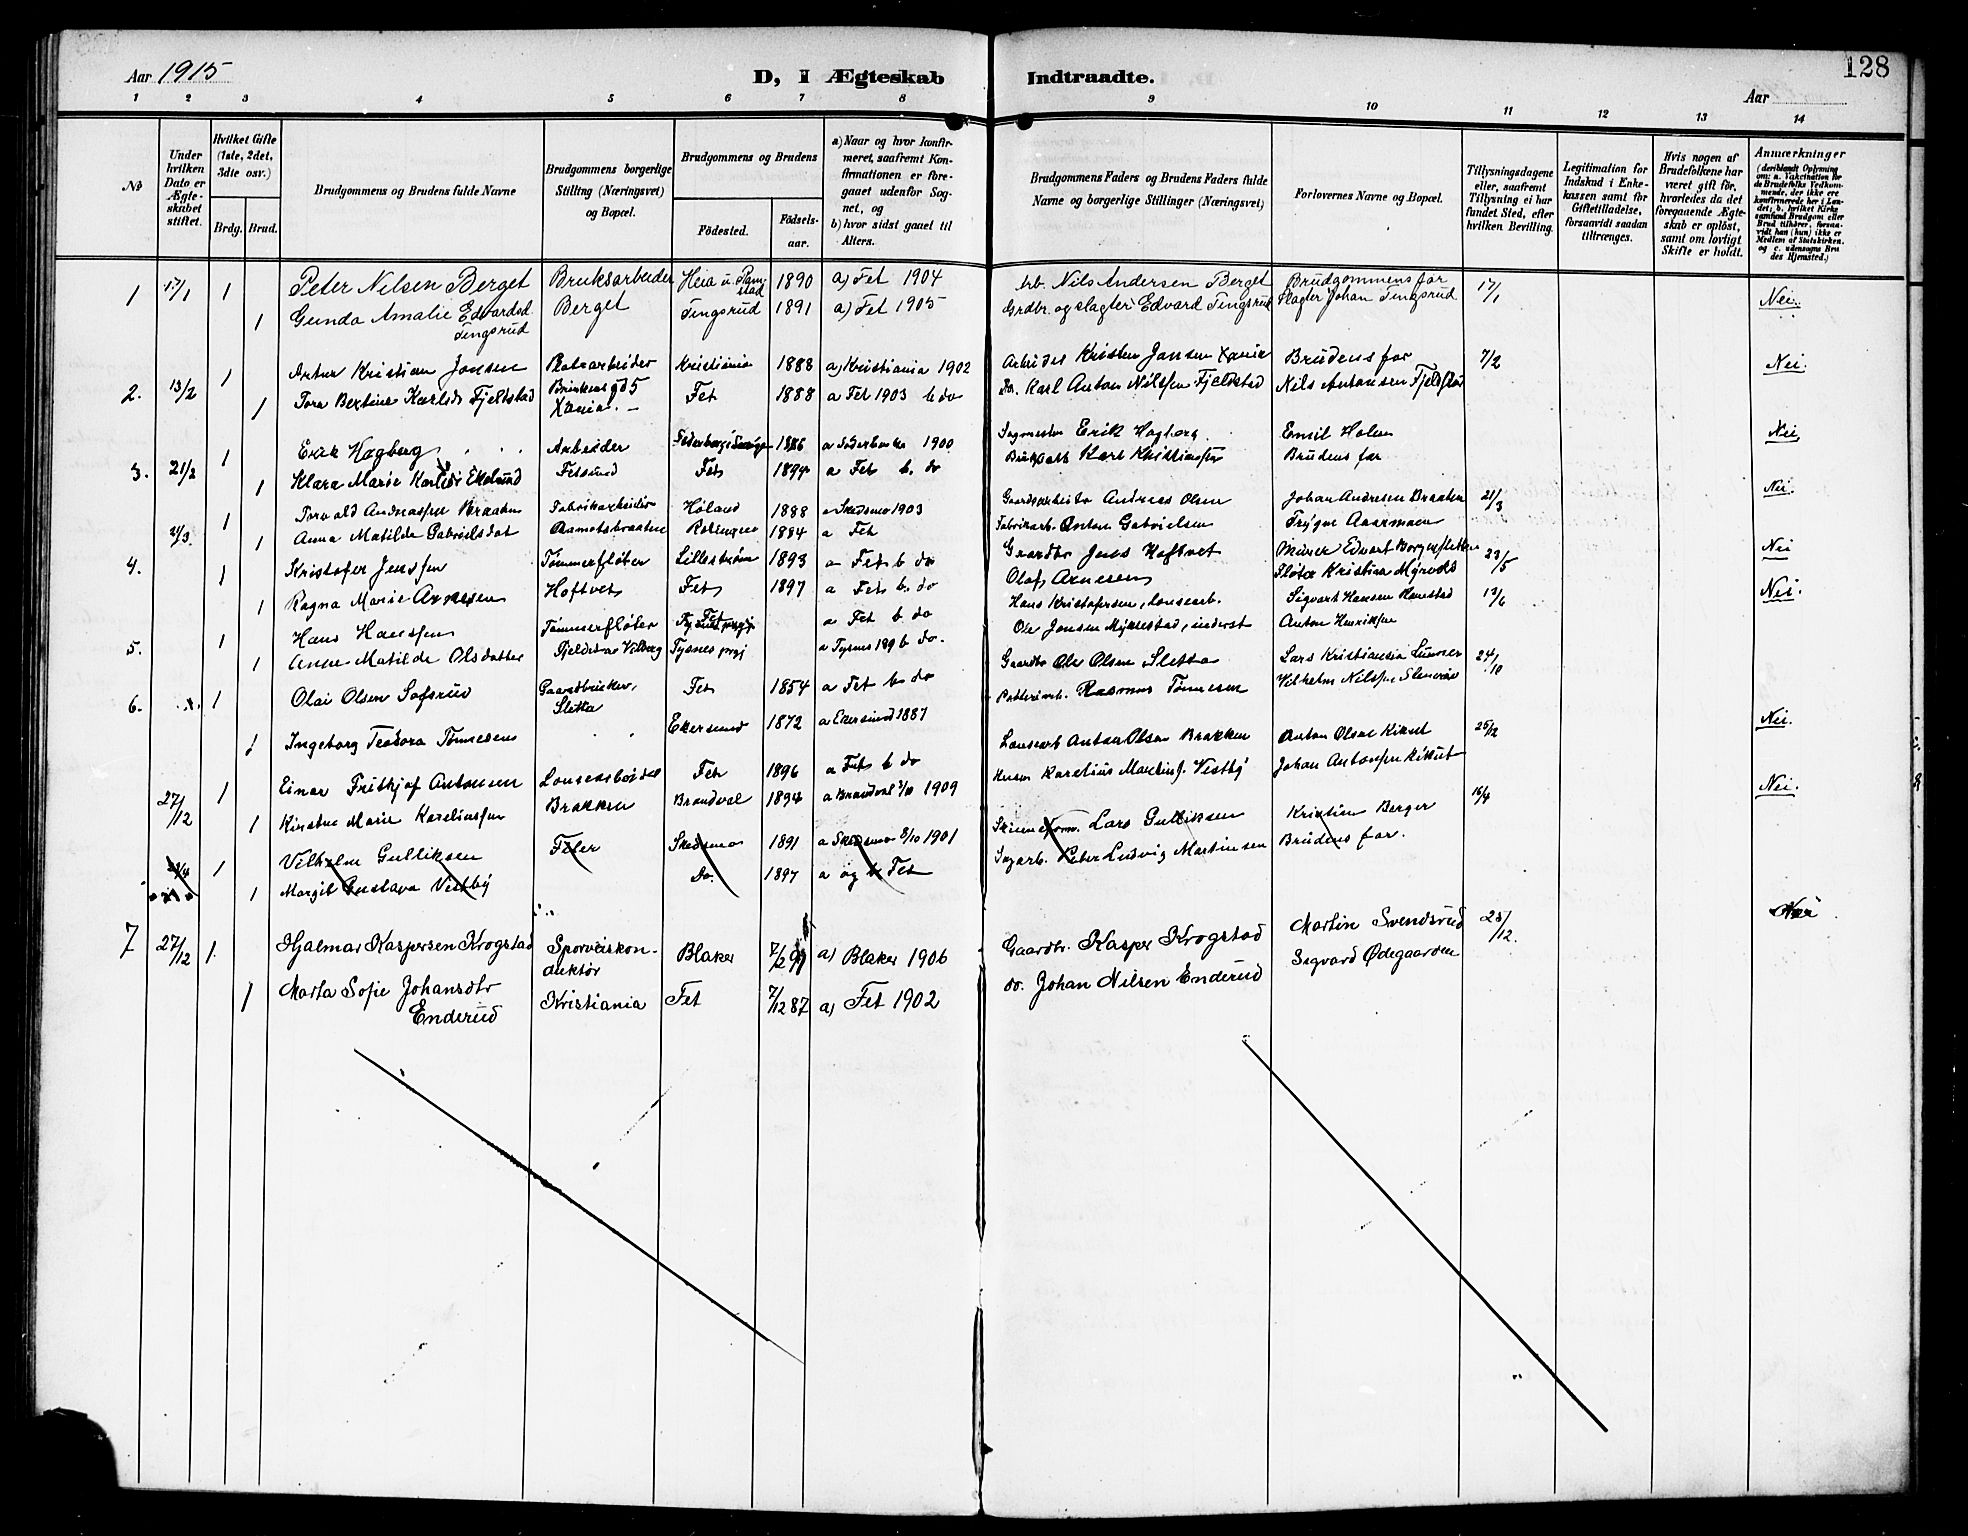 Aar 1915
D, I Ægteskab Indtraadte.
128
Aar
1 2 3 4 5 6 7 8 9 10 11 12 13 14
No
Under hvilken Dato er Ægteskabet stiftet.
Hvilket Gifte (1ste, 2det, 3die osv.)
Brdg. Brud.
Brudgommens og Brudens fulde Navne
Brudgommens borgerlige Stilling (Næringsvei) og Bopæl.
Brudgommens og Brudens
Födested.
Födselsaar.
a) Naar og hvor konfirmeret, saafremt Konfirmationen er foregaaet udenfor Sognet, og
b) hvor sidst gaaet til Alters.
Brudgommens Faders og Brudens Faders fulde Navne og borgerlige Stillinger (Næringsvei)
Forlovernes Navne og Bopæl.
Tillysningsdagene eller, saafremt Tillysning ei har fundet Sted, efter hvilken Bevilling.
Legitimation for Indskud i Enkekassen samt for Giftetilladelse, forsaavidt saadan tiltrænges.
Hvis nogen af Brudefolkene har været gift för, hvorledes da det foregaaende Ægteskab er oplöst, samt om lovligt Skifte er holdt.
Anmærkninger
(deriblandt Oplysning om: a. Vakcination för de Brudefolks Vedkommende, der ikke ere konfirmerede her i Landet; b. hvilket Kirkesamfund Brudgom eller Brud tilhörer, forsaavidt han (hun) ikke er Medlem af Statskirken, og c. udensogns Brudes Hjemsted.)
1 17/1 1 Peter Nilsen Berget Bruksarbeider Heia u. Ramstad 1890 a) Fet 1904 Arb. Nils Andersen Berget Brudgommens far 17/1 Nei.
1 Gunda Amalie Edvardsd. Tingsrud Berget Tingsrud 1891 a) Fet 1905 Grdbr. og slagter Edvard Tingsrud Slagter Johan Tingsrud
2. 13/2 1 Artur Kristian Jonsen Kristiania 1888 a) Kristiania 1902 Arbeider Kristen Jonsen Xania Brudens far 7/2 Nei.
1 Tora Bertine Karlsd. Fjeldstad Xania. Fet 1888 a Fet 1903 b do Karl Anton Nilssen Fjeldstad Nils Antonsen Fjeldstad
3. 21/2 1 Erik Hagberg Arbeider 1886 1900 Erik Hagberg Emil Holen Nei
1 Klara Marie Ekelund Fetsund Fet 1894 a Fet b. do Karl Kristiansen Brudens far
21/3. 1 Torvald Andreassen Braaten Fabrikarbeider Høland 1888 a Skedsmo 1903 Gaardsarbeider Andreas Olsen Johan Andresen Braaten 21/3 Nei.
1 Anna Matilde Gabrielsdat 1884 a Fet Fabrikarb. Anton Gabrielsen Trygve Aaarmoen
4. 1 Kristofer Jenssen Tømmerfløter Lillestrøm 1893 a Fet b do Gaardbr Jens Hoftvet Murer Edvart Borgersletten 23/5 Nei
1 Ragna Marie Arnesen Hoftvet Fet 1897 a Fet b. do Olaf Arnesen Fløter Kristian Myrvold
5. 1 Hans Hanssen Tømmerfløter Fet a Fet b do Hans Kristofersen, lousearb. Sigvart Hansen Ramstad 13/6 Nei.
1 Anne Matilde Olsdatter Tysnes prgj a Tysnes 189 b do. Ole Jonsen Myklestad, inderst Anton Henriksen
6. 1 Olai Olsen Sofsrud Gaardbruker, Sletta Fet 1854 a Fet b do Gaardbr Ole Olsen Sletta Lars Kristiansen 24/10
1 Ingeborg Teodora Tønnesen Ekersund 1872 a Ekersund 1887 Rasmus Tønnesen Vilhelm Nilssen Nei.
27/12 1 Einar Fritjof Antonsen Lousearbeider Fet 1896 a Fet b do Lousearb Anton Olsen Brakken Anton Olsen Kikut 25/12
1 Kirstine Marie Kareliussen Brakken Brandval 1894 a Brandval 3/10 1909 Karelius Martins. Vestby Johan Antonsen Kikut Nei.
23/4 1 Vilhelm Gulliksen Filer Skedsmo 1891 a Skedsmo 8/10 1901 Lars Gulliksen Kristian Berger 16/4
1 Margit Gustava Vestby Do. 1897 a og b Fet Sagarb. Peter Ludvig Martinsen Brudens far.
7 27/12 1. Hjalmar Kaspersen Krogstad Sporveiskonduktør Blaker a) Blaker 1906 Gaardbr. Kasper Krogstad Martin Svendsrud 23/12. Nei
1 Marta Sofie Johansdtr Enderud Kristiania Fet 7/12 87 a) Fet 1902 do. Johan Nilsen Enderud Sigvard Ødegaarden